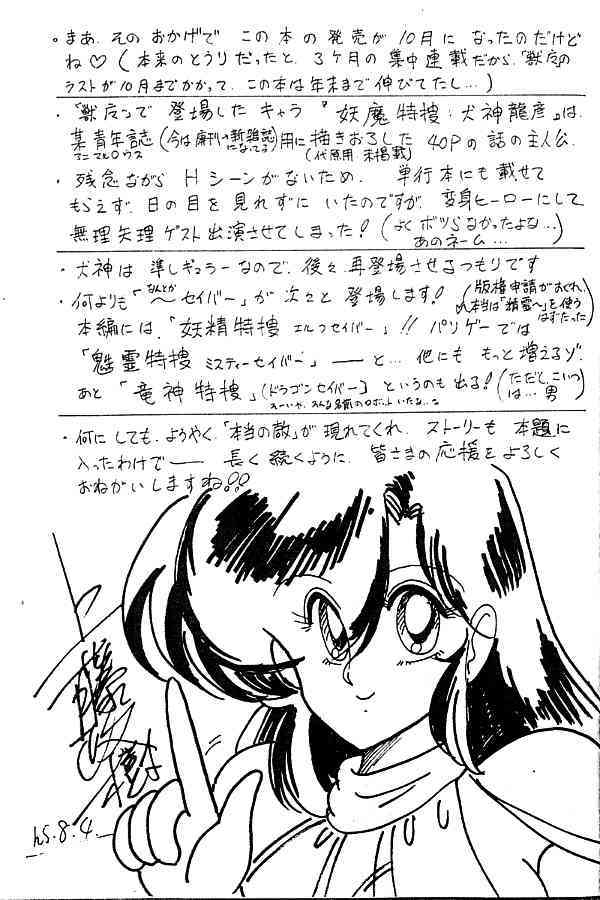 。まあ、そのおかげで この本の発売が10月に なったのだけど
ね♡(本来のとうりだったと、3ヶ月の集中連載だから、「獣庆」の
ラストが10月までかかって、この本は年末まで伸びてたし…)
・「獣庆」で 登場したキャラ『妖魔特捜:犬神龍彦』は、
某青年誌(今は廃刊の新雑誌になってる)用に描きおろした 40Pの話の主人公。
アニマルハウス (代原用 未掲載)
・残念ながら Hシーンがないため、単行本にも載せて
もらえず、日の目を見れずに いたのですが、変身ヒーローにして
無理矢理 ゲスト出演させてしまった!(よくボツらなかったよな…
あのネーム…)
・犬神は 準レギュラーなので、後々再登場させるつもりです
・何よりも「なんとか〜セイバー」が 次々と 登場します!(版権申請がおくれ、
本当は「精霊〜」を使うはずだった)
本編には、「妖精特捜 エルフセイバー」!! パソゲーでは
「魅霊特捜 ミスティーセイバー」——と… 他にも もっと増えるゾ、
あと「竜神特捜」(ドラゴンセイバー) というのも出る!(ただし、こいつ
は… 男)
えーい、そんな名前のロボットいたな…。
・何にしても、ようやく「本当の敵」が 現れてくれ、ストーリーも 本題に
入ったわけで—— 長く続くように、皆さまの応援をよろしく
おねがいしますね!!
h5.8.4